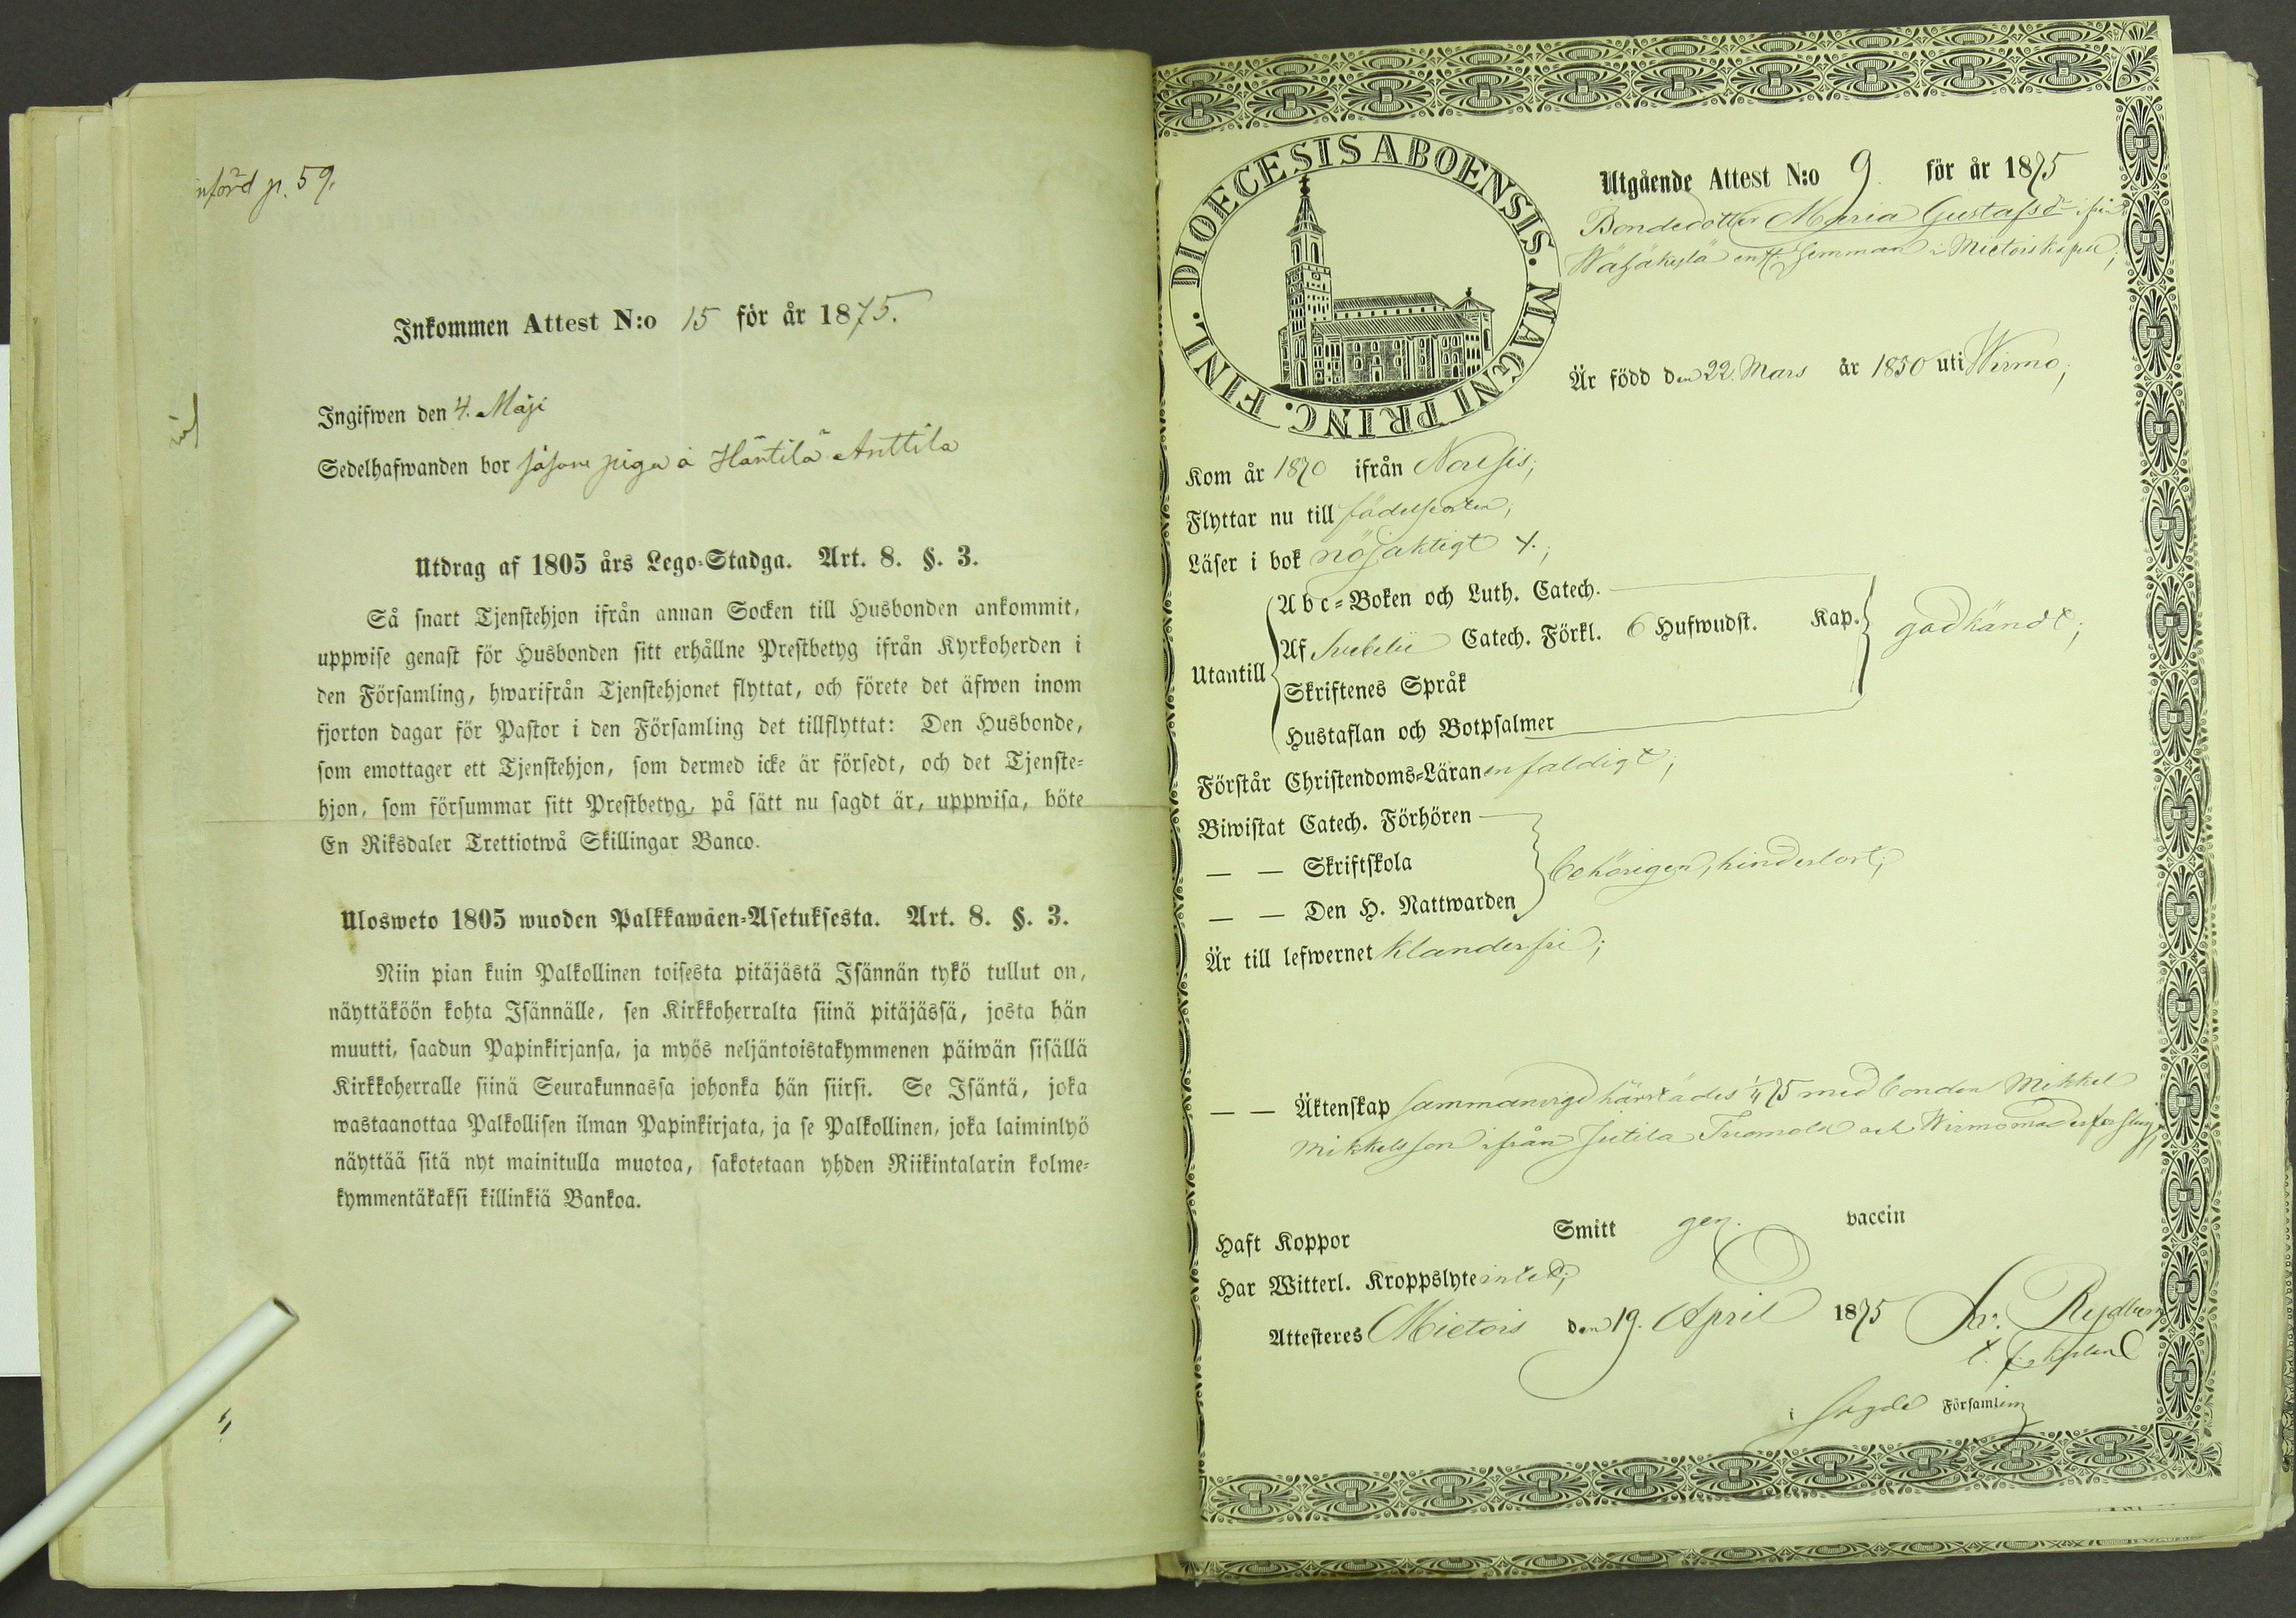 införd p. 59.
Inkommen Attest N:o 15 för år 1875.
Ingifwen den 4. Maji
Sedelhafwanden bor såsom piga å Häntilä Anttila
Utdrag af 1805 års Lego-Stadga. Art. 8. §. 3.
Så snart Tjenstehjon ifrån annan Socken till Husbonden ankommit,
uppwise genast för Husbonden sitt erhållne Prestbetyg ifrån Kyrkoherden i
den Församling, hwarifrån Tjenstehjonet flyttat, och förete det äfwen inom
fjorton dagar för Pastor i den Församling det tillflyttat: Den Husbonde,
som emottager ett Tjenstehjon, som dermed icke är försedt, och det Tjenste-
hjon, som försummar sitt Prestbetyg, på sätt nu sagdt är, uppwisa, böte
En Riksdaler Trettiotwå Skillingar Banco.
Ulosweto 1805 wuoden Palkkawäen-Asetuksesta. Art. 8. §. 3.
Niin pian kuin Palkollinen toisesta pitäjästä Isännän tykö tullut on,
näyttäköön kohta Isännälle, sen Kirkkoherralta siinä pitäjässä, josta hän
muutti, saadun Papinkirjansa, ja myös neljäntoistakymmenen päiwän sisällä
Kirkkoherralle siinä Seurakunnassa johonka hän siirsi. Se Isäntä, joka
wastaanottaa Palkollisen ilman Papinkirjata, ja se Palkollinen, joka laiminlyö
näyttää sitä nyt mainitulla muotoa, sakotetaan yhden Riikintalarin kolme-
kymmentäkaksi killinkiä Bankoa.
DIOECESIS ABOENSIS. MAGNI PRINC. FINL.
Utgående Attest N:o 9. för år 1875
Bondedotter Maria Gustafsd:r ifrån
i Mietois kapell;
Är född den 22. Mars år 1850 uti Wirmo;
Kom år 1870 ifrån Nousis;
Flyttar nu till födelseorten;
Läser i bok nöjaktigt +.;
Abc-Boken och Luth. Catech.
Utantill Af Svebelii Catech. Förkl. 6 Hufwudst. Kap. godkändt;
Skriftenes Språk
Hustaflan och Botpsalmer
Förstår Christendoms-Läran enfaldigt;
Biwistat Catech. Förhören
— — Skriftskola behörigen, hinderlort;
— — Den H. Nattwarden
Är till lefwernet klanderfri;
— — Äktenskap sammanvigd härstädes 1/4 75 med bonden Mikkel
Mikkelsson ifrån Jutila och Wirmo moderförslg;
Haft Koppor Smitt gen. vaccin
Har Witterl. Kroppslyte intet;
Attesteres Mietois den 19. April 1875 Rydberg
t. f. kaplan
i sagde Församling